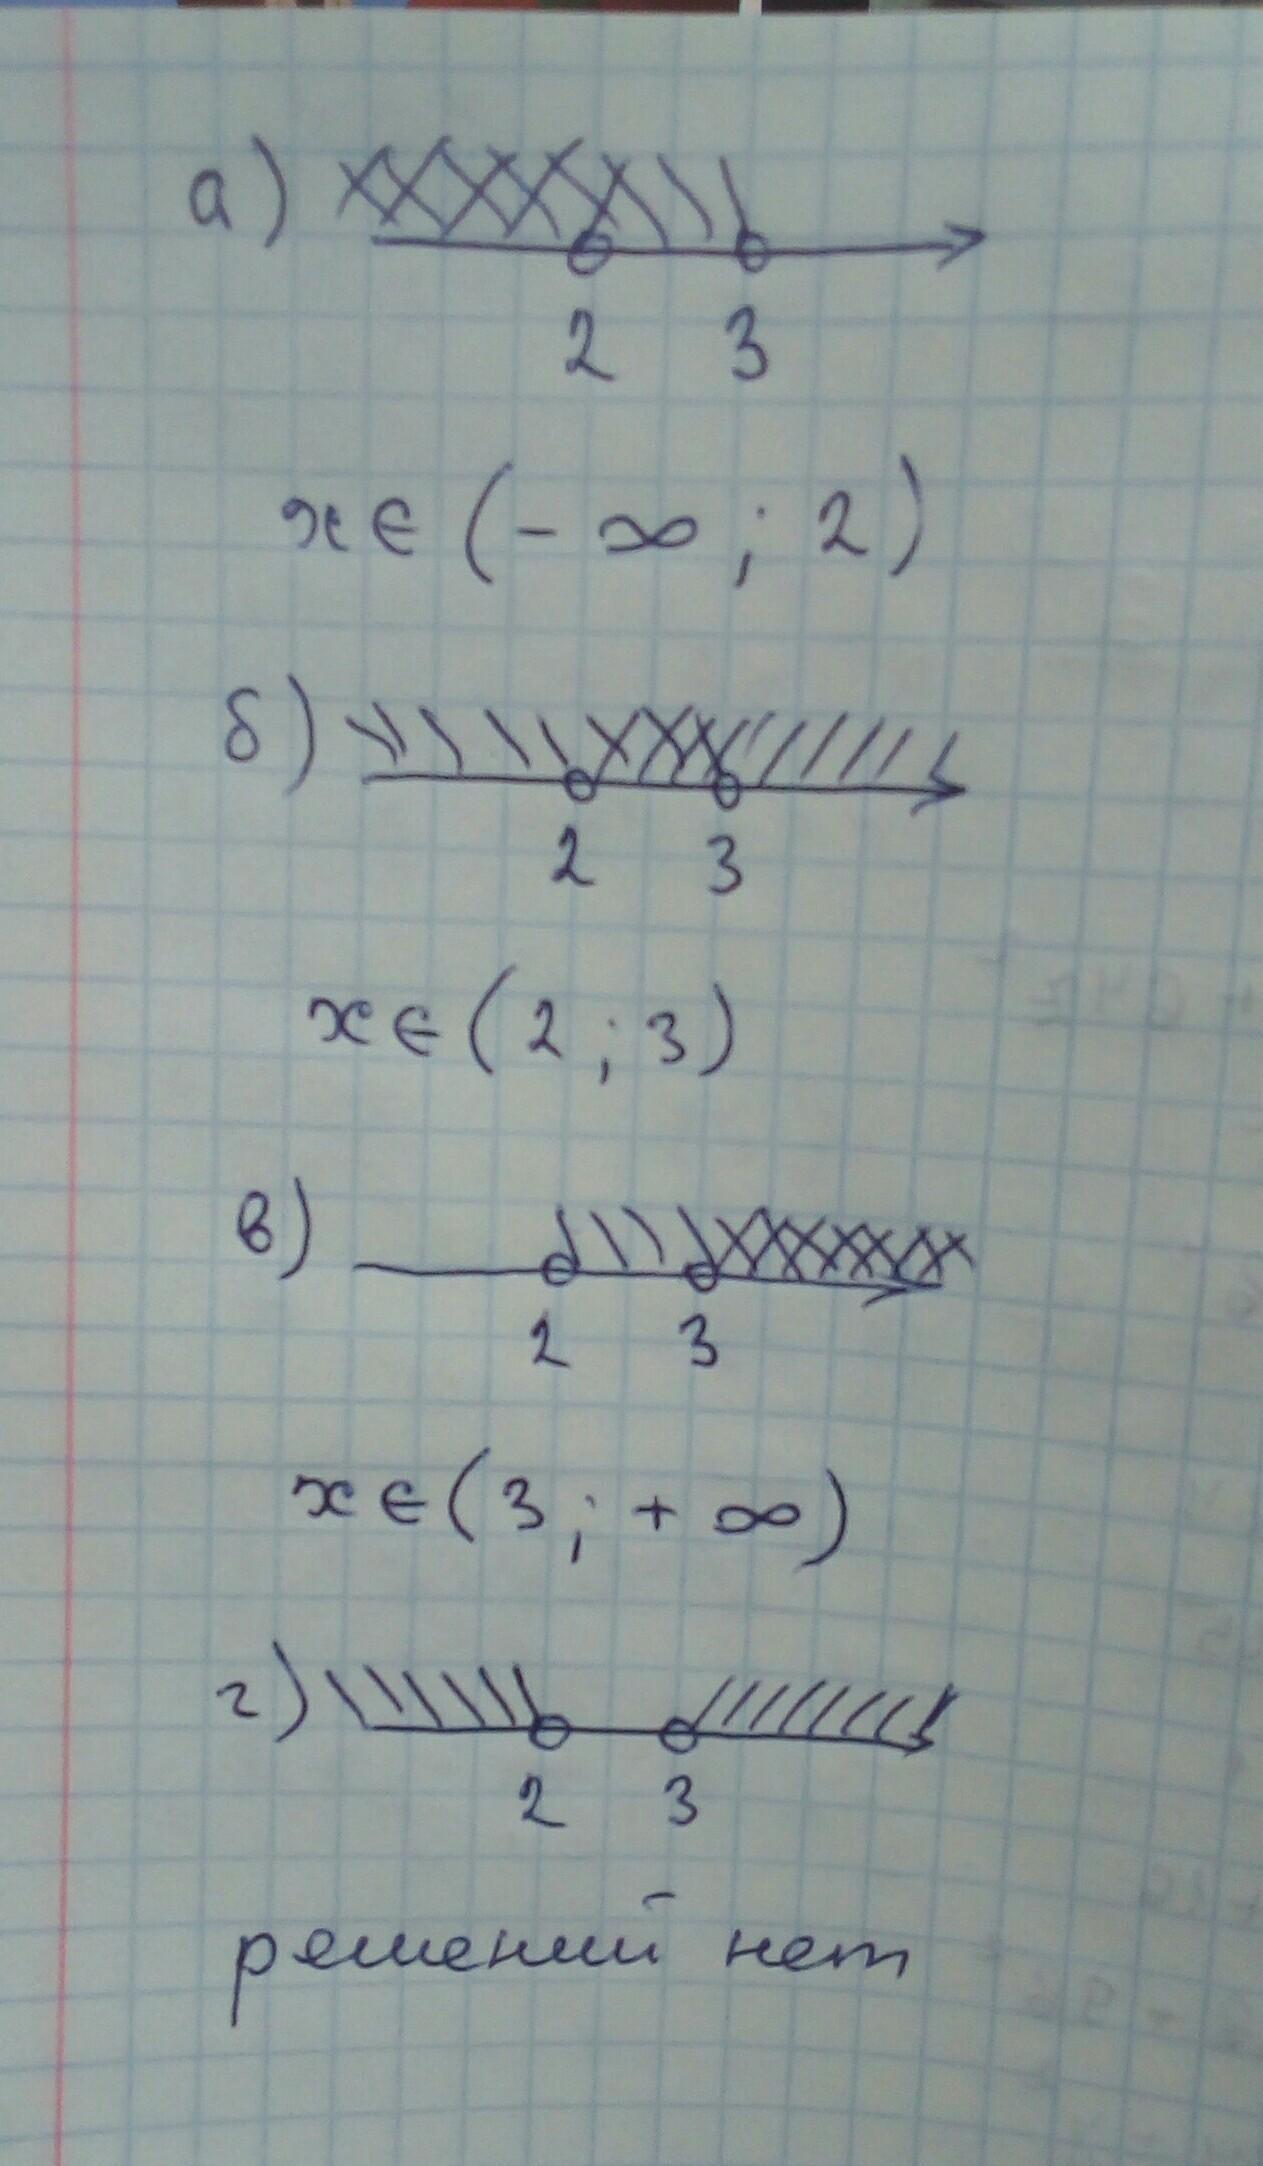 а)
2 3
x ∈ (- ∞ ; 2)
б)
2 3
x ∈ (2 ; 3)
в)
2 3
x ∈ (3 ; + ∞)
г)
2 3
решений нет